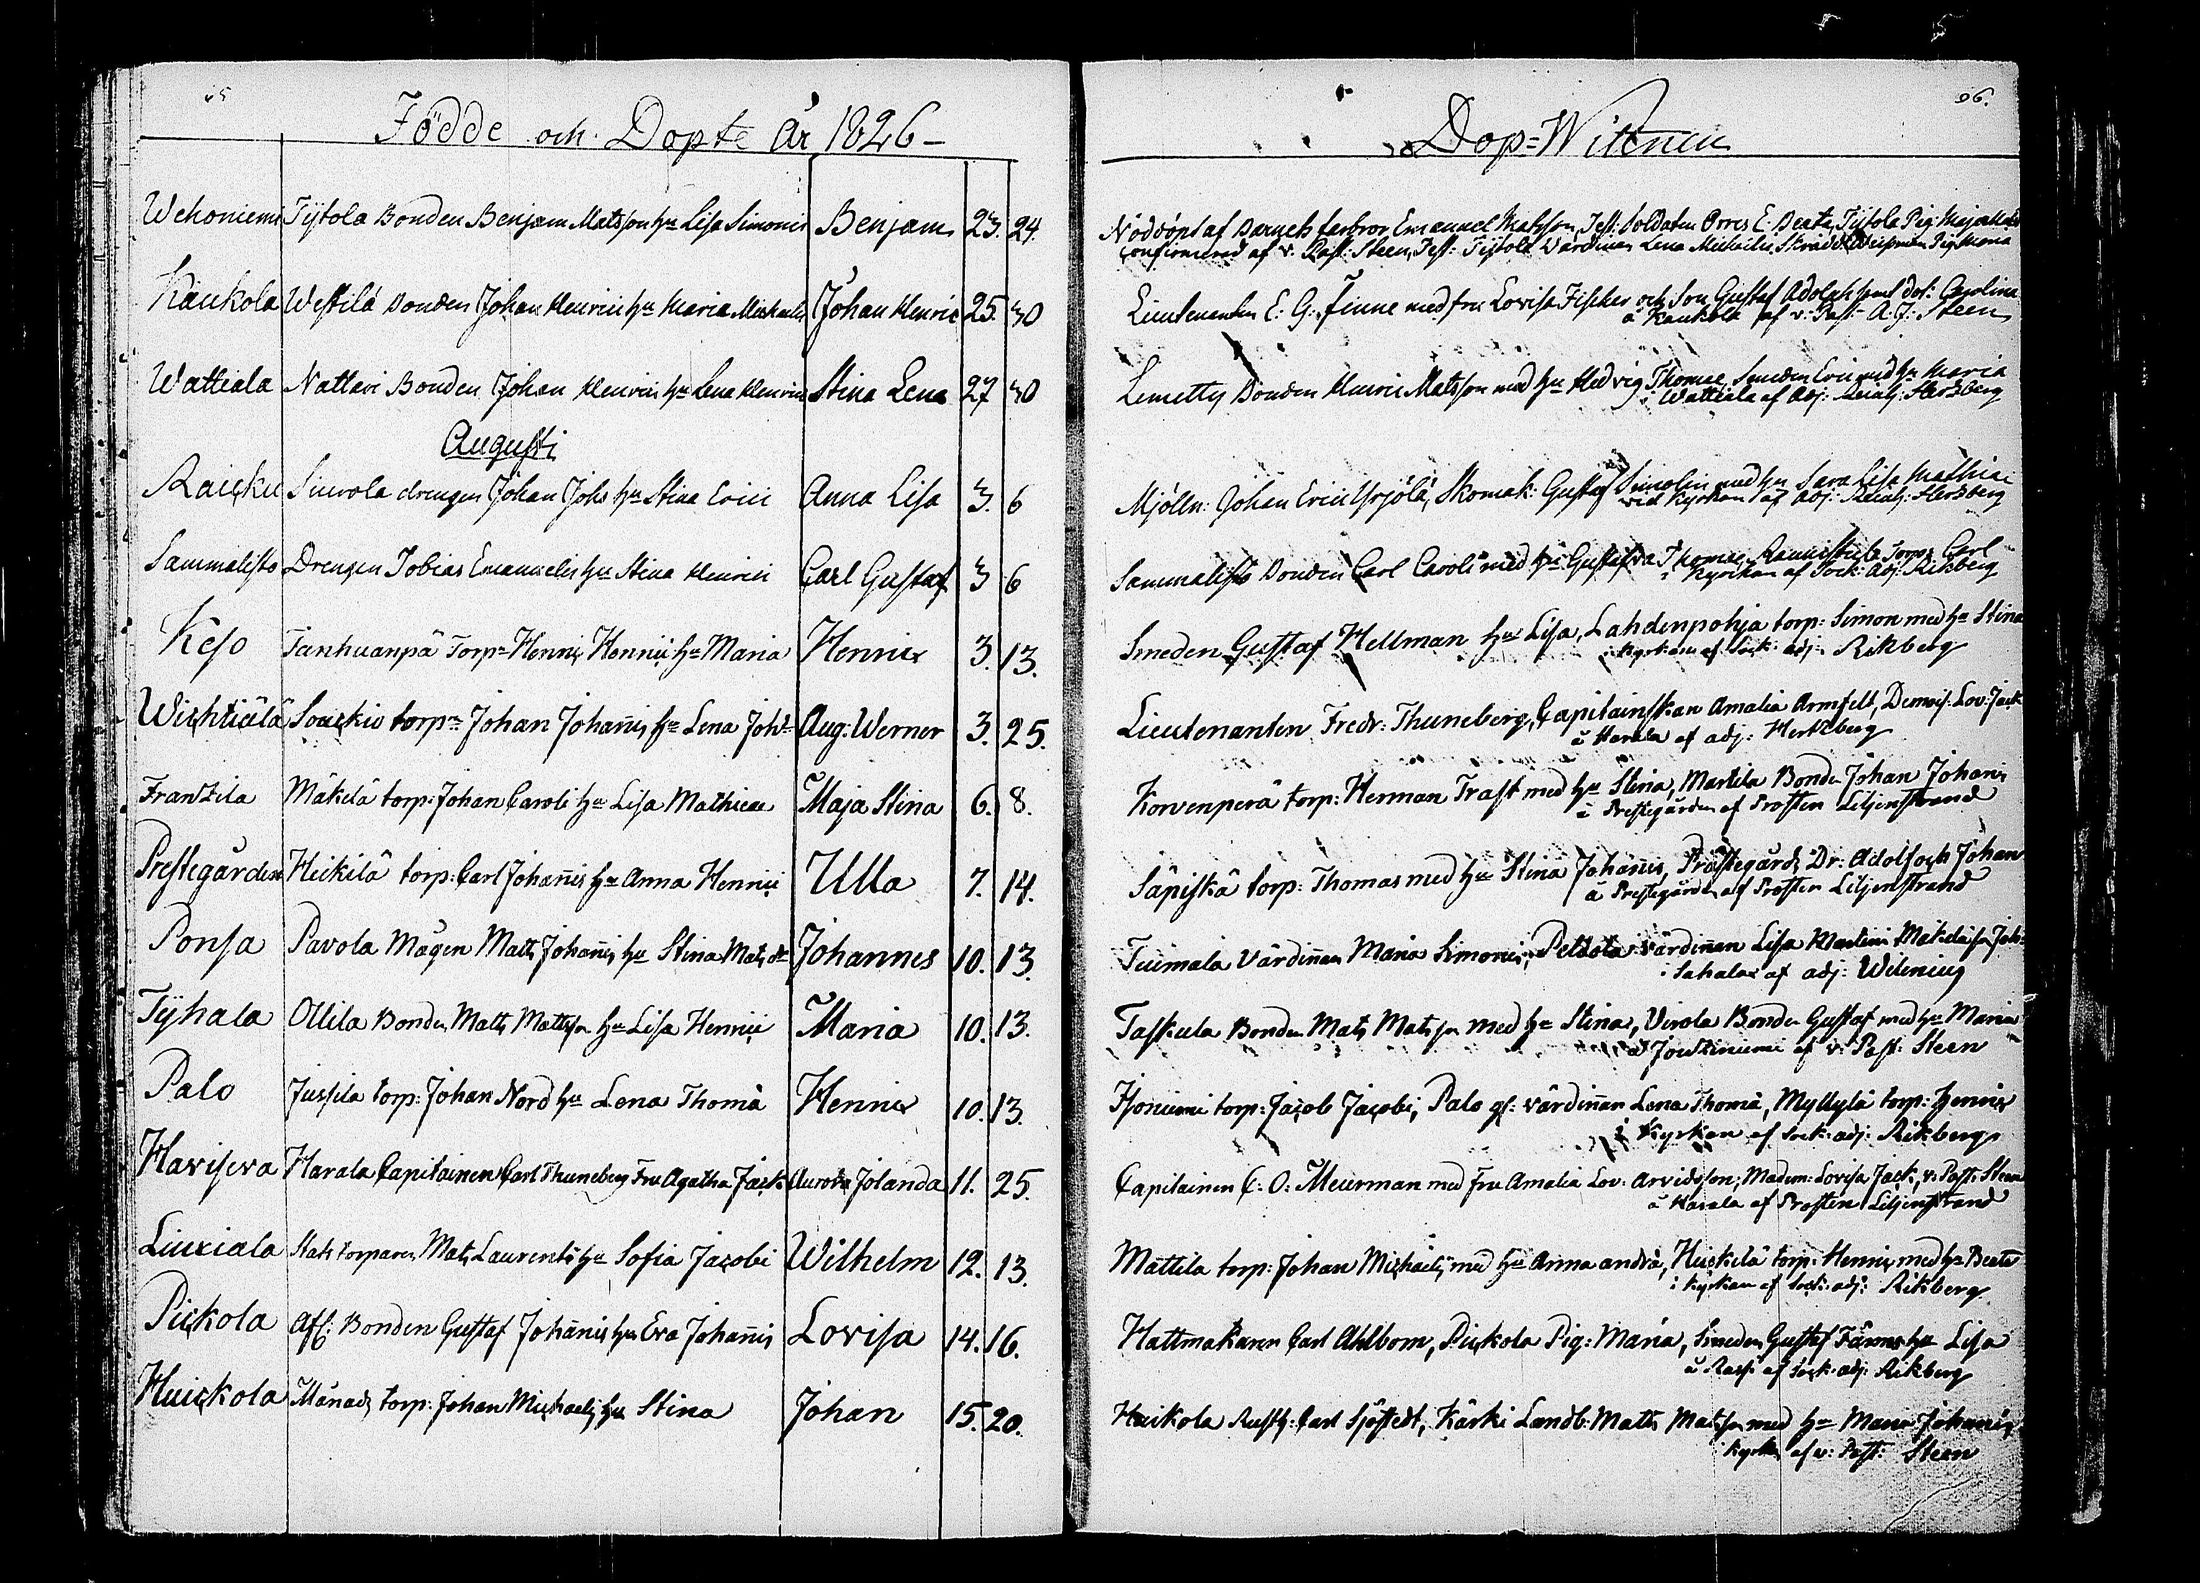 Födde och Dopte År 1826 –
Wehoniemi Tÿtola Bonden Benjam Matsson hu Lisa Simonis Benjam 23. 24.
Kaukola Westilä Bonden Johan Henrici hu Maria Michaelis Johan Henric 25. 30
Wattiala Nattari Bonden Johan Henrici hu Lena Henrici Stina Lena 27 30
Augusti
Raicku drengen Johan Johs hu Stina Erici Anna Lisa 3. 6
Sammalisto Drengen Tobias Emanuelis hu Stina Henrici Carl Gustaf 3 6
Kejo Tanhuanpä Torp: Henric Henrici hu Maria Henric 3. 13.
Wichtiälä torp: Johan Johañis hu Lena Joh: Aug: Werner 3. 25.
Frantzila Mäkelä torp: Johan Caroli hu Lisa Mathiae Maja Stina 6. 8.
Prestegården Heickilä torp: Carl Johañis hu Anna Henrici Ulla 7. 14.
Ponsa Pavola Mågen Matts Johañis hu Stina Mats dr Johannes 10. 13.
Tÿhala Ollila Bonden Matts Mattss. hu Lisa Henrici Maria 10. 13.
Palo Jussila torp: Johan Nord hu Lena Thomæ Henric 10. 13.
Haviseva Harala Capitainen Carl Thuneberg Fru Agatha Jack Aurora Jolanda 11. 25.
Liuxiala torparen Mats Laurentii hu Sofia Jacobi Wilhelm 12. 13.
Pickola Afs: Bonden Gustaf Johañis hu Eva Johañis Lovisa 14. 16.
Huickola Månads torp: Johan Michaelis hu Stina Johan 15. 20.
96.
Dop=Wittnen
Nöddöpt af Barnets farbror Emanuel Matsson, Test: Soldaten Orres E. Beata, Tÿtola Pig: Maja
Confirmerad af v. Past: Steen, Test: Tÿtola Wärdinan Lena Michaelis,
Lieutenanten E: G: Finne med fru Lovisa Fischer och Son Gustaf Adolph samt dot: Carolina
å Kaukola af v: Past: A. J: Steen
Lemetty Bonden Henric Matsson med hu Hedvig Thomæ, Smeden Eric med hu Maria
i Wattiala af Adj: Hertzberg
Mjölln: Johan Erici Yrjölä, Skomak: Gustaf med hu Sara Lisa Mathiæ
vid Kyrkan af Adj: Hertzberg
Sammalisto Bonden Carl Caroli med hu Gustafva Thomæ, Torp: Carl
i Kyrkan af Sock: Adj: Rikberg
Smeden Gustaf Hellman hu Lisa, Lahdenpohja torp: Simon med hu Stina
i Kyrkan af Sock: adj: Rikberg
Lieutenanten Fredr: Thuneberg, Capitainskan Amalia Armfelt, Demois: Lov: Jack
å Harala af adj: Hertzberg
Korvenperä torp: Herman Trast med hu Stina, Marttila Bonden Johan Johañis
i Prestegården af Prosten Liljenstrand
Säpiskä torp: Thomas med hu Stina Johañis, Prästegårds Dr: Adolf och Johan
å Prestegården af Prosten Liljenstrand
Tuimala Värdiñan Maria Simonis, Peltola värdiñan Lisa Martini
i Sahalax af adj: Wilenius
Taskula Bonden Mats Matss. med hu Stina, Virola Bonden Gustaf med hu Maria
i Joutziniemi af v: Past: Steen
Isoniemi torp: Jacob Jacobi, Palo gl: värdiñan Lena Thomæ, Myllylä torp: Henric
i Kyrkan af Sock: adj: Rikberg
Capitainen C. O: Meurman med Fru Amalia Lov: Arvidsson, Madem: Lovisa Jack, v: Past: Steen
å Harala af Prosten Liljenstrand
Mattila torp: Johan Michaelis med hu Anna Andræ, Heickilä torp: Henric med hu Beata
i Kyrkan af Sock: adj: Rikberg
Hattmakaren Carl Ahlbom, Pickola Pig: Maria, Smeden Gustaf hu Lisa
af Sock: adj: Rikberg
Huikola Rusth: Carl Sjöstedt, Kärki Landb: Matts Matss. med hu Maria Johañis
i Kyrkan af v: Past: Steen